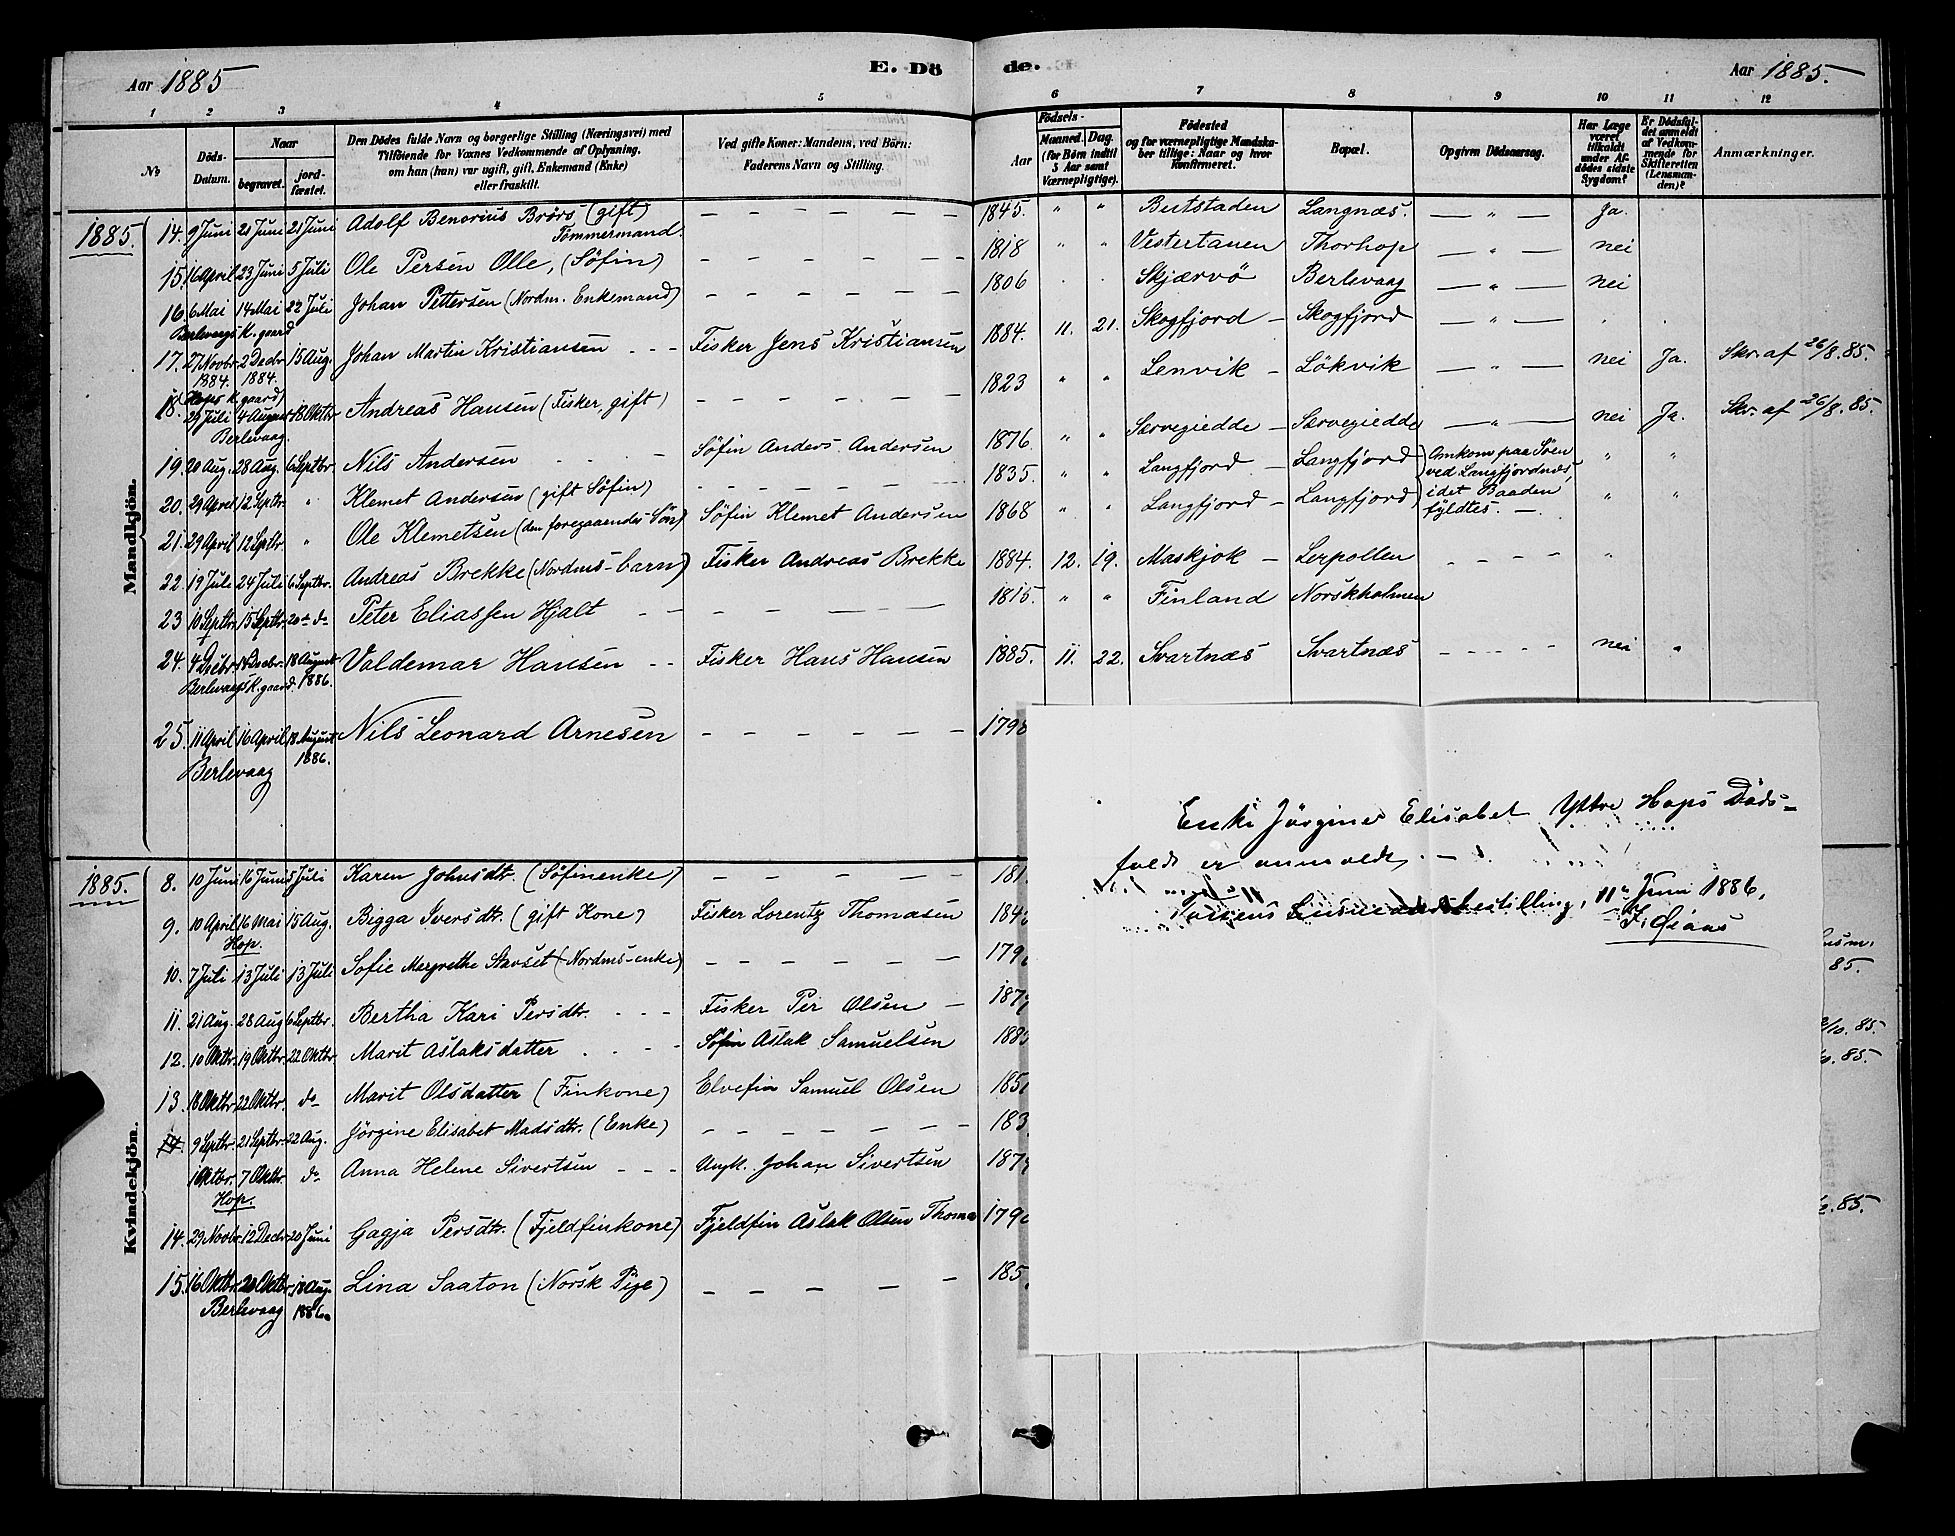 Aar 1885 E. Dö de. Aar 1885.
1 2 3 4 5 6 7 8 9 10 11 12
No
Döds-Datum.
Naar
begravet. jord-fæstet.
Den Dödes fulde Navn og borgerlige Stilling (Næringsvei) med
Tilföiende for Voxnes Vedkommende af Oplysning,
om han (hun) var ugift, gift, Enkemand (Enke)
eller fraskilt.
Ved gifte Koner: Mandens, ved Börn:
Faderens Navn og Stilling.
Födsels-
Aar Maaned. Dag.
(for Börn indtil
5 Aar samt
Værnepligtige).
Födested
og for værnepligtige Mandska-
ber tillige: Naar og hvor
Konfirmeret.
Bopæl.
Opgiven Dödsaarsag.
Har Læge
været
tilkaldt
under Af-
dödes sidste
Sygdom?
Er Dödsfal-
det anmeldt
af Vedkom-
mende for
Skifteretten
(Lensman-
den)?
Anmærkninger.
1885.
Mandkjön.
14. 9 Juni 21 Juni 21 Juni Adolf Benorius Brörs (gift) — — — — — — 1845. " " Butstaden Langnæs. — " — Ja.
Tömmermand.
15. 16 April 23 Juni 5 Juli Ole Persen Olle, (Söfin) — — — — — — 1818 " " Vestertanen Thorhop — " — nei
16. 6 Mai 14 Mai 22 Juli Johan Pettersen (Nordm. Enkemand) — — — — — — 1806 . . Skjærvö Berlevaag — " — nei
Berlevaags K. gaard
17. 27 Novbr 2 Decbr 15 Aug. Johan Martin Kristiansen - - - Fisker Jens Kristiansen 1884. 11. 21. Skogfjord — Skogfjord — " —
1884. 1884.
(Hops K. gaard)
18. 29 Juli 4 August 18 Oktbr Andreas Hansen (Fisker, gift) — — — — — — 1823 " " Lenvik — Lökvik — " — nei Ja. Skr. af 26/8. 85.
Berlevaag.
19. 20 Aug. 28 Aug. 6 Septbr Nils Andersen Söfin Anders Andersen 1876 " " Særvegiedde — Særvegiedde — " — nei Ja. Skr. af 26/8. 85.
20. 29 April 12 Septbr. " Klemet Andersen (gift Söfin) - - - - - - 1835. " " Langfjord — Langfjord Omkom paa Söen " "
ved Langfjordnæs,
21. 29 April 12 Septbr. " Ole Klemetsen (den foregaaendes Sön) Söfin Klemet Andersen 1868 " " Langfjord — Langfjord idet Baaden " "
fyldtes. —
22. 19 Juli 24 Juli 6 Septbr. Andreas Brekke (Nordms-barn) Fisker Andreas Brekke 1884. 12. 19. Maskjok — Lerpollen - - - - "
23 10 Septbr. 15 Septbr. 20de do Peter Eliassen Hjalt — — — — — — 1815. " " Finland Norskholmen
24. 4 Decbr. 18 Decbr. 18 August Valdemar Hansen - - Fisker Hans Hansen 1885. 11. 22. Svartnæs Svartnæs - - - - - nei "
Berlevaags K. gaard. 1886.
25. 11 April 16 April 18 August Nils Leonard Arnesen — — — — — — 1798
Berlevaag 1886.
1885.
Kvindekjön.
8. 10 Juni 16 Juni 5 Juli Karen Johnsdtr. (Söfinenke) — — — — — — 181
9. 10 April 16 Mai 15 Aug. Bigga Iversdtr. (gift Kone) Fisker Lorentz Thomasen 184
Hop.
10. 7 Juli 13 Juli 13 Juli Sofie Margrethe Stavset (Nordms-enke) — — — — — — 179
11. 21 Aug. 28 Aug 6 Septbr. Bertha Kari Persdtr. - - - Fisker Per Olsen — 187
12. 10 Oktbr. 19 Oktbr. 22 Oktbr. Marit Aslaksdatter - - - Söfin Aslak Samuelsen 188
13. 18 Oktbr. 22 Oktbr. do Marit Olsdatter (Finkone) Elvefin Samuel Olsen 185
14. 9 Septbr. 21 Septbr. 22 Aug. Jörgine Elisabet Madsdtr. (Enke) — — — — — — 183
1 Oktbr. 7 Oktbr. do Anna Helene Sivertsen - - - Ungk. Johan Sivertsen 187
Hop.
14. 29 Novbr. 12 Decbr. 20 Juni Gagja Persdtr. (Fjeldfinkone) Fjeldfin Aslak Olsen Thoma 179
15. 16 Oktbr. 20 Oktbr. 18 Aug. Lina Saaton (Norsk Pige) — — — — — 185
Berlevaag 1886.
Enke Jörgine Elisabet Yttre Hops Döds-
fald er anmeldt. —
Tanens Lensmandsbestilling, 11te Juni 1886,
85.
85.
85.
85.